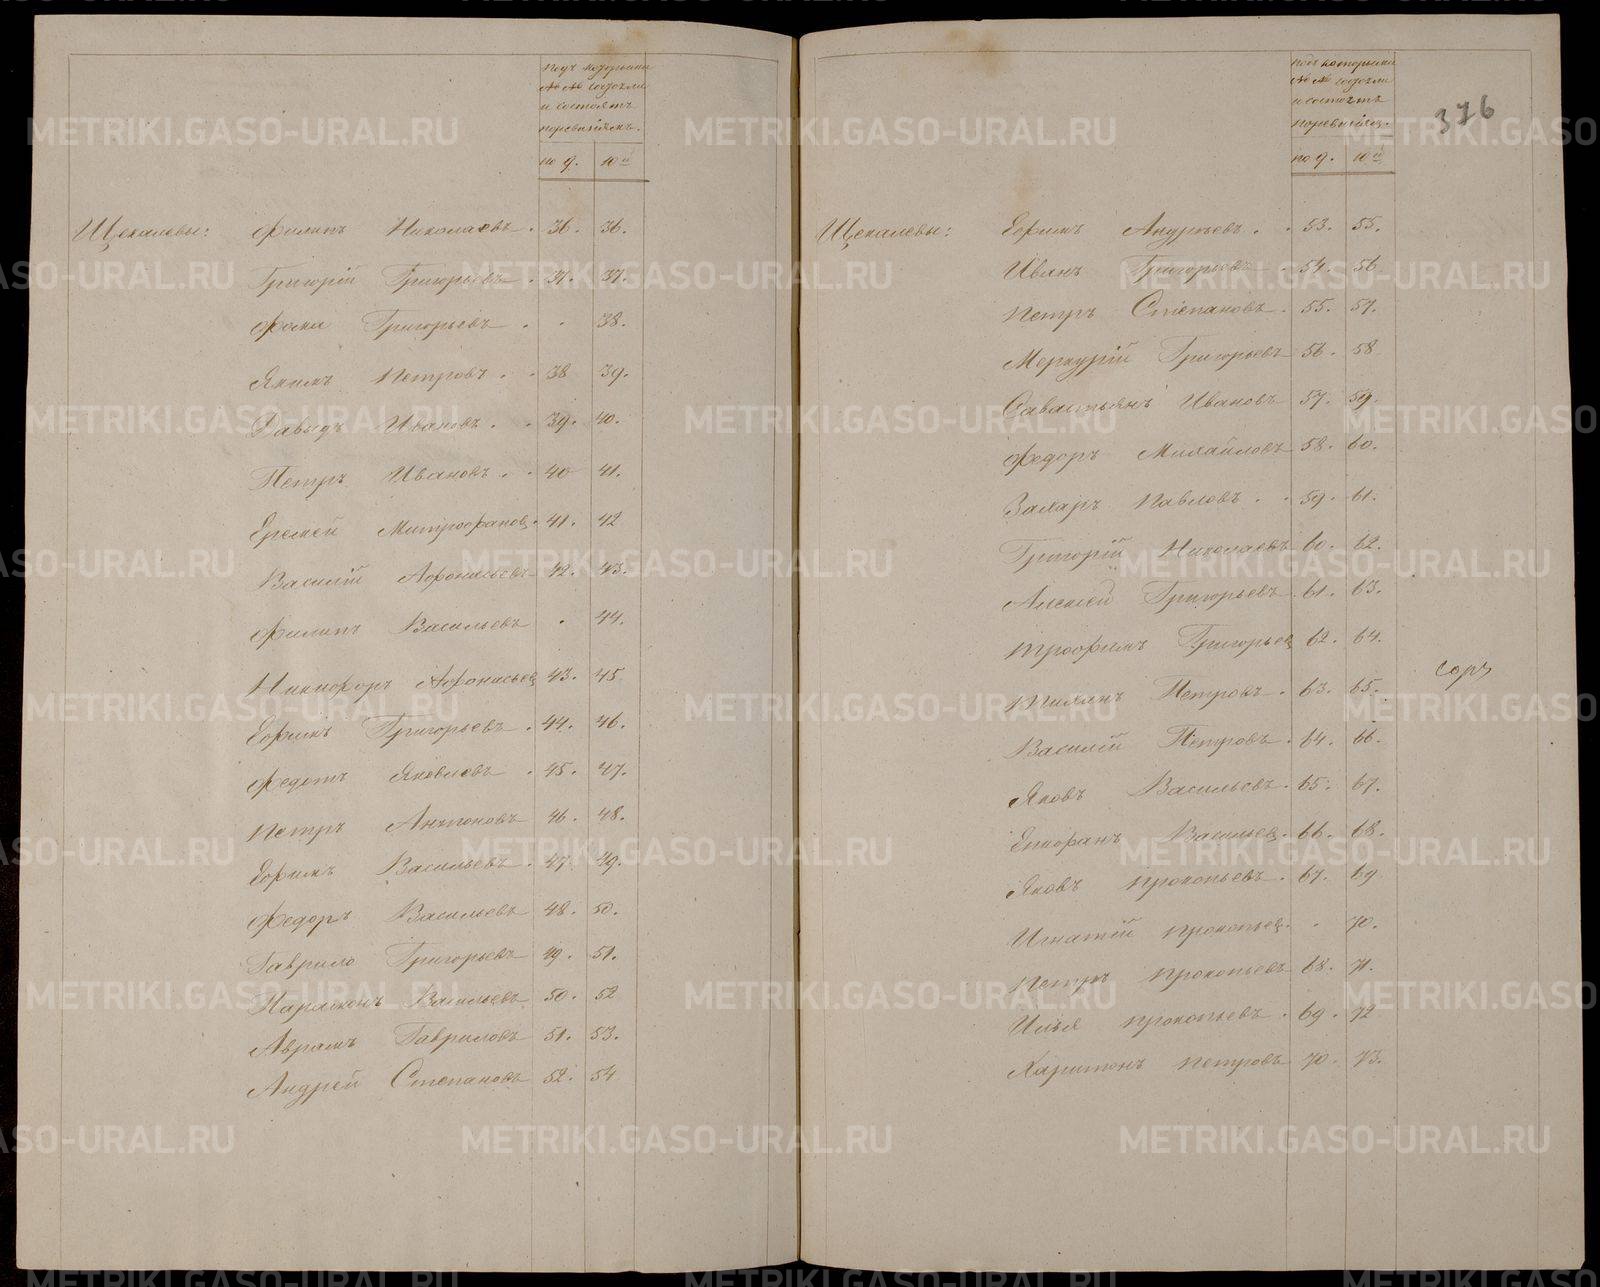 Подъ которыми
№ № состояли
и состоятъ
по ревизіямъ.
по 9. 10й
Щекалевы: Филипъ Николаевъ . 36. 36.
Григорій Григорьевъ . 37. 37.
Фока Григорьевъ . . 38.
Якимъ Петровъ . . 38 39.
Давыдъ Ивановъ . . 39. 40.
Петръ Ивановъ . . 40 41.
Ермей Митрофанов . 41. 42
Василій Афонасьевъ 42. 43.
Филипъ Васильевъ . 44.
Никифоръ Афонасьев 43. 45
Ефимъ Григорьевъ . 44. 46.
Федотъ Яковлевъ . 45. 47.
Петръ Антоновъ 46. 48.
Ефимъ Васильевъ . 47. 49.
Федоръ Васильевъ 48. 50.
Гаврило Григорьевъ 49. 51.
Парамонъ Васильевъ 50. 52
Аврамъ Гавриловъ 51. 53.
Андрей Степановъ 52. 54
376
Подъ которыми
№ № состояли
и состоятъ
по ревизіям.
по 9. 10й
Щекалевы: Ефимъ Андреевъ . . 53. 55.
Иванъ Григорьевъ . 54. 56
Петръ Степановъ . 55. 57.
Меркурій Григорьевъ 56. 58
Савастьянъ Ивановъ 57. 59.
Федоръ Михайловъ 58. 60.
Захаръ Павловъ . . 59. 61.
Григорій Николаевъ 60. 62.
Алексей Григорьевъ . 61. 63.
Трофимъ Григорьев 62. 64.
Петровъ . 63. 65.
Василій Петровъ . 64. 66.
Яковъ Васильевъ . 65. 67.
Епифанъ Васильев . 66. 68.
Яковъ Прокопьевъ . 67. 69
Игнатій Прокопьев . . 70.
Петръ Прокопьевъ 68. 71.
Илья Прокопьевъ . 69. 72
Харитонъ Петровъ 70. 73.
METRIKI.GASO-URAL.RU